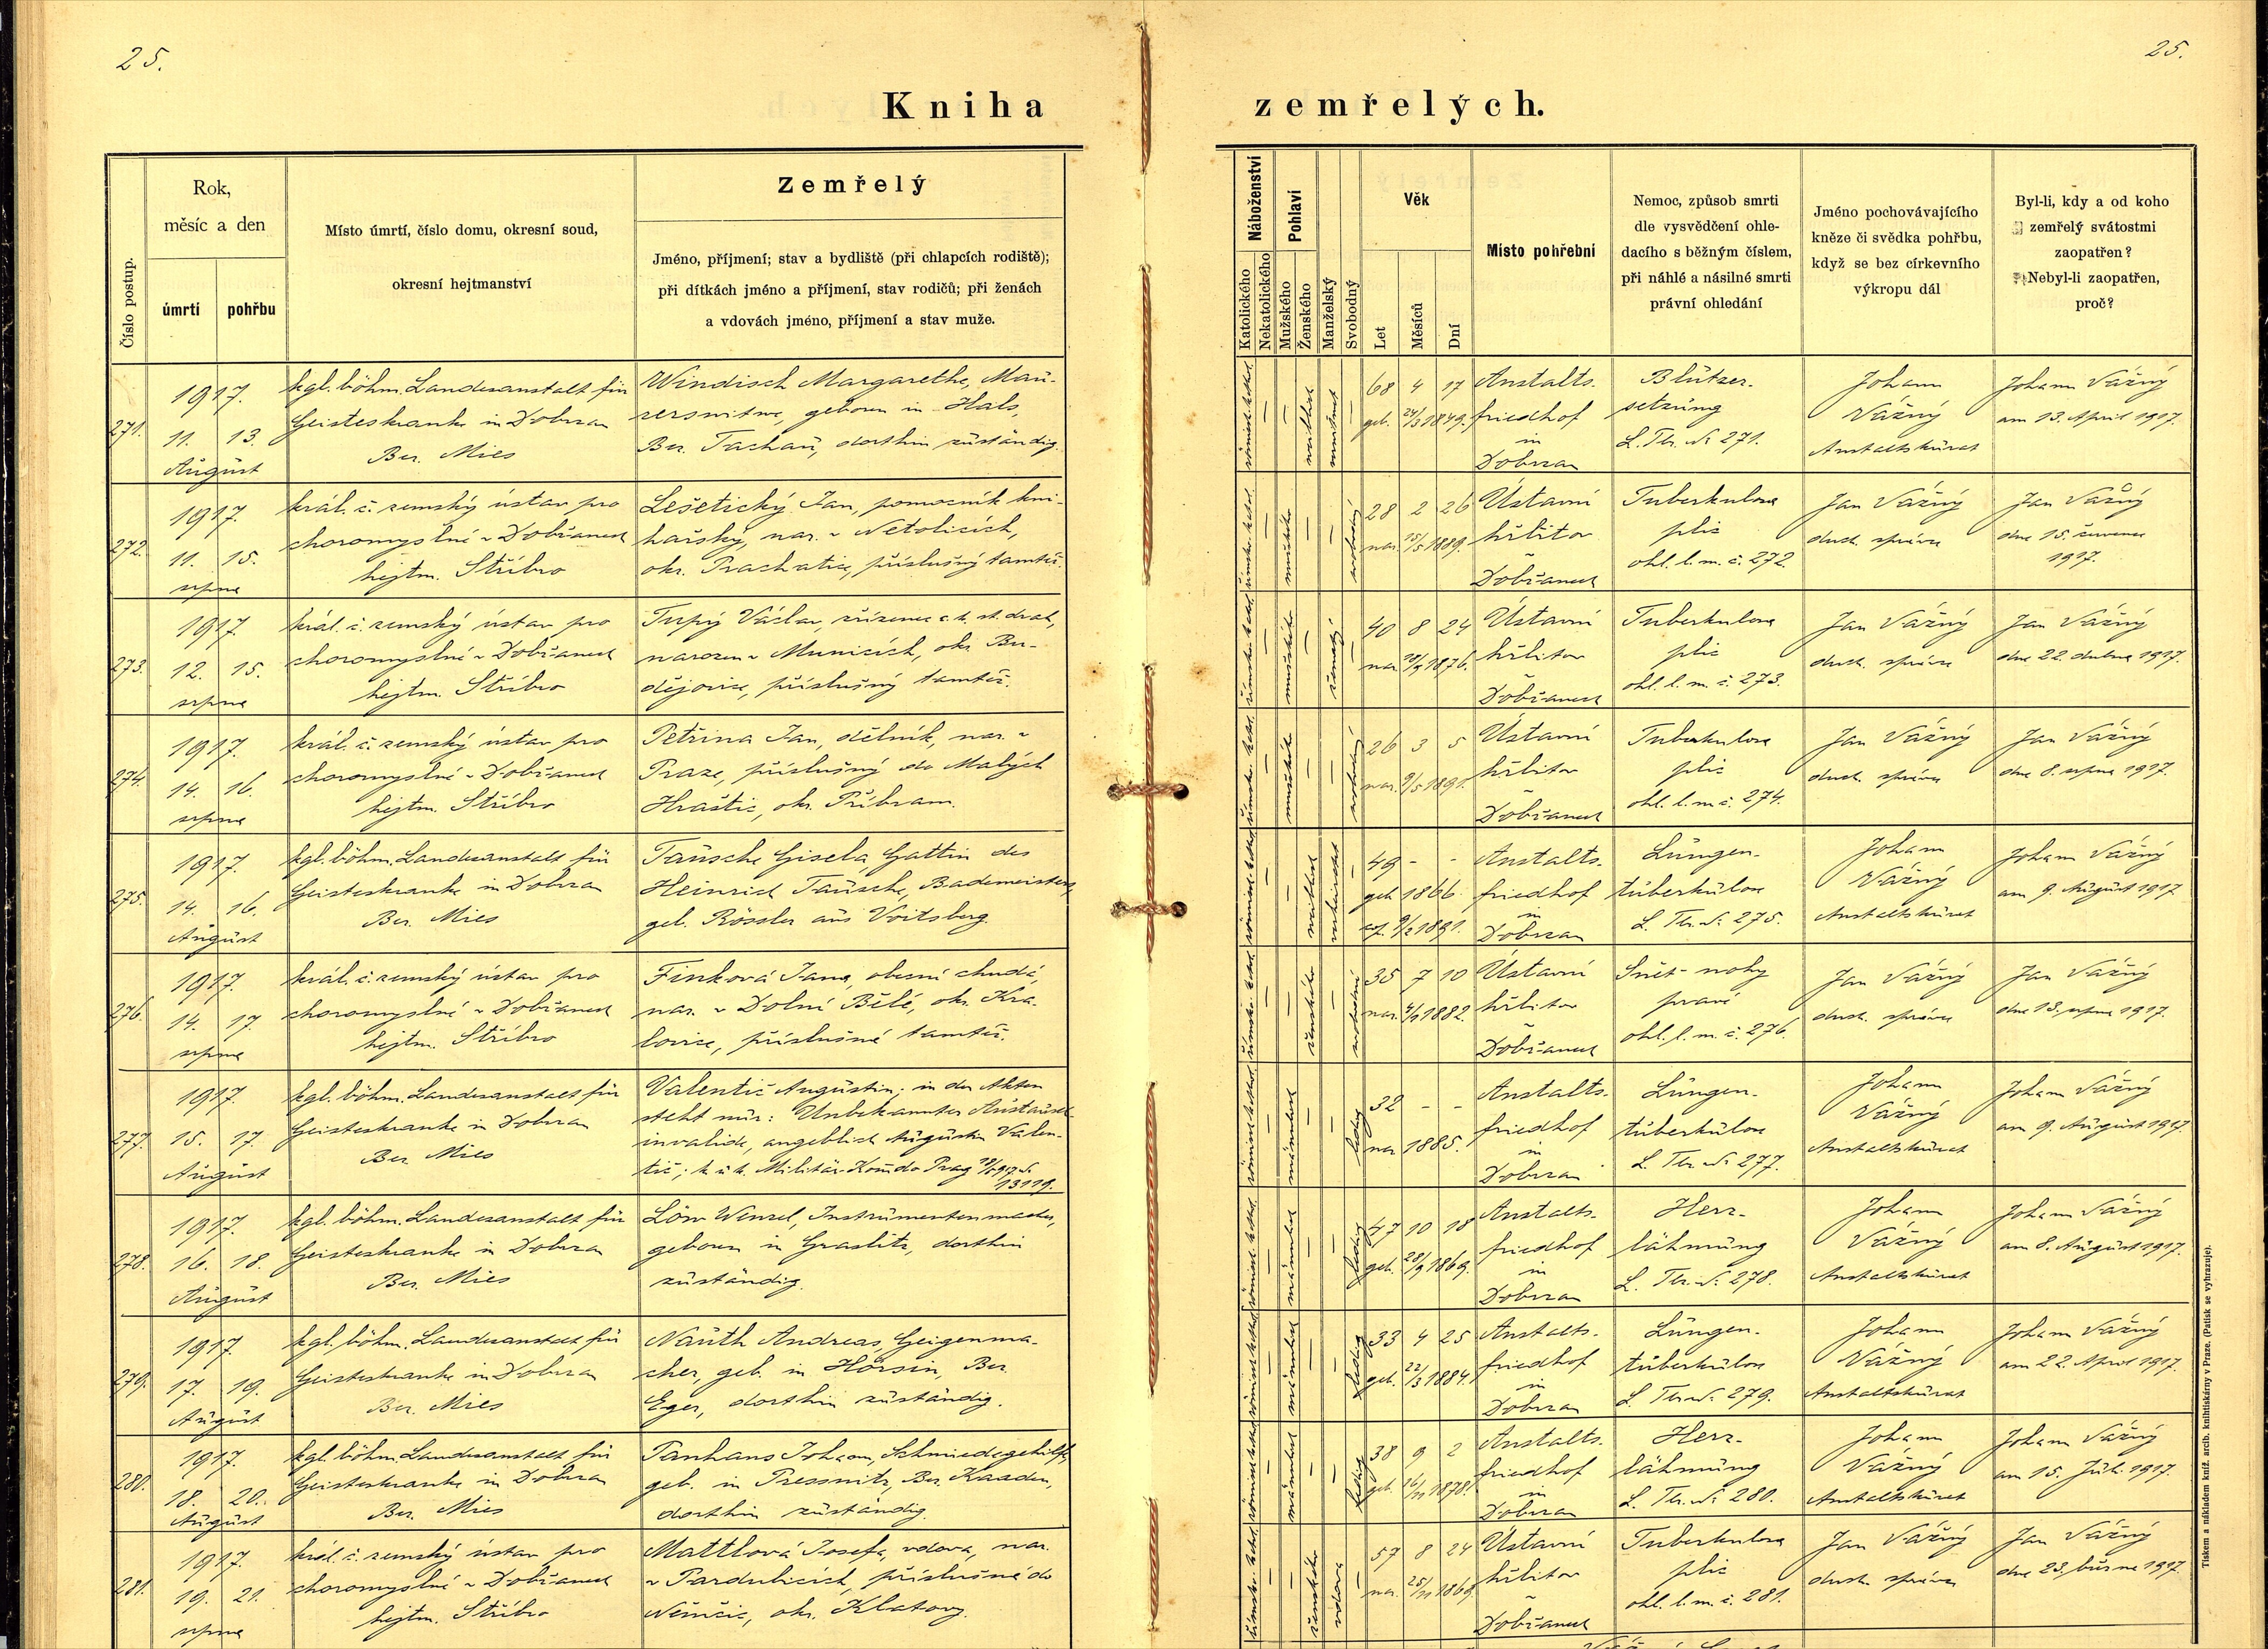 25.
25.
Kniha zemřelých.
Číslo postup.
Rok,
měsíc a den
úmrtí
pohřbu
Místo úmrtí, číslo domu, okresní soud,
okresní hejtmanství
Zemřelý
Jméno, příjmení; stav a bydliště (při chlapcích rodiště);
při dítkách jméno a příjmení, stav rodičů; při ženách
a vdovách jméno, příjmení a stav muže.
Náboženství
Katolického
Nekatolického
Pohlaví
Mužského
Ženského
Manželský
Svobodný
Věk
Let
Měsíců
Dní
Místo pohřební
Nemoc, způsob smrti
dle vysvědčení ohle-
dacího s běžným číslem,
při náhlé a násilné smrti
právní ohledání
Jméno pochovávajícího
kněze či svědka pohřbu,
když se bez církevního
výkropu dál
Byl-li, kdy a od koho
zemřelý svátostmi
zaopatřen?
Nebyl-li zaopatřen,
proč?
271.
1917.
11. 13.
August
kgl. böhm. Landesanstalt für
Geisteskranke in Dobrzan
Bez. Mies
Windisch Margarethe, Mau-
rerswitwe, geboren in Hals,
Bez. Tachau, dorthin zuständig.
römisch-kathol.
weiblich
verwitwet
68 4 17
geb. 24/3 1849.
Anstalts-
friedhof
in
Dobrzan
Blutzer-
setzung
L. Tbr. № 271.
Johann
Vážný
Anstaltskurat
Johann Vážný
am 13. April 1917.
272.
1917.
11. 15.
srpna
král. č. zemský ústav pro
choromyslné v Dobřanech
hejtm. Stříbro
Lešetický Jan, pomocník kni-
hařský, nar. v Netolicích,
okr. Prachatice, příslušný tamtéž.
římsko-katol.
mužského
svobodný
28 2 26
nar. 15/5 1889.
Ústavní
hřbitov
v
Dobřanech
Tuberkulosa
plic
ohl. l. m. č. 272.
Jan Vážný
duch. správce
Jan Vážný
dne 15. července
1917.
273.
1917.
12. 15.
srpna
král. č. zemský ústav pro
choromyslné v Dobřanech
hejtm. Stříbro
Tupý Václav, zřízenec c. k. st. drah,
narozen v Municích, okr. Bu-
dějovice, příslušný tamtéž.
římsko-katol.
mužského
ženatý
40 8 24
nar. 1876.
Ústavní
hřbitov
v
Dobřanech
Tuberkulosa
plic
ohl. l. m. č. 273.
Jan Vážný
duch. správce
Jan Vážný
dne 22. dubna 1917.
274.
1917.
14. 16.
srpna
král. č. zemský ústav pro
choromyslné v Dobřanech
hejtm. Stříbro
Petřina Jan, dělník, nar. v
Praze, příslušný do Malých
Hraštic, okr. Příbram.
římsko-katol.
mužského
svobodný
26 3 5
nar. 9/5 1891.
Ústavní
hřbitov
v
Dobřanech
Tuberkulosa
plic
ohl. l. m. č. 274.
Jan Vážný
duch. správce
Jan Vážný
dne 8. srpna 1917.
275.
1917.
14. 16.
August
kgl. böhm. Landesanstalt für
Geisteskranke in Dobrzan
Bez. Mies
Tausche Gisela, Gattin des
Heinrich Tausche, Bademeisters,
geb. Rössler aus Voitsberg.
römisch-kathol.
weiblich
verheiratet
49 - -
geb. 1866.
1891.
Anstalts-
friedhof
in
Dobrzan
Lungen-
tuberkulose
L. Tbr. № 275.
Johann
Vážný
Anstaltskurat
Johann Vážný
am 9. August 1917.
276.
1917.
14. 17.
srpna
král. č. zemský ústav pro
choromyslné v Dobřanech
hejtm. Stříbro
Finková Jana, obecní chudá,
nar. v Dolní Bělé, okr. Kra-
lovice, příslušná tamtéž.
římsko-katol.
ženského
svobodná
35 7 10
nar. 4/1 1882.
Ústavní
hřbitov
v
Dobřanech
Sněť nohy
pravé
ohl. l. m. č. 276.
Jan Vážný
duch. správce
Jan Vážný
dne 13. srpna 1917.
277.
1917.
15. 17.
August
kgl. böhm. Landesanstalt für
Geisteskranke in Dobrzan
Bez. Mies
Valentič Augustin; in den Akten
steht nur: Unbekannter Austausch-
invalide, angeblich Augustin Valen-
tič; k. u. k. Militär-Komdo Prag №
13119.
römisch-kathol.
männlich
ledig
32 - -
nar. 1885.
Anstalts-
friedhof
in
Dobrzan
Lungen-
tuberkulose
L. Tbr. № 277.
Johann
Vážný
Anstaltskurat
Johann Vážný
am 9. August 1917.
278.
1917.
16. 18.
August
kgl. böhm. Landesanstalt für
Geisteskranke in Dobrzan
Bez. Mies
Löw Wenzel, Instrumentenmacher,
geboren in Graslitz, dorthin
zuständig.
römisch-kathol.
männlich
ledig
47 10 18
geb. 28/9 1869.
Anstalts-
friedhof
in
Dobrzan
Herz-
lähmung
L. Tbr. № 278.
Johann
Vážný
Anstaltskurat
Johann Vážný
am 8. August 1917.
279.
1917.
17. 19.
August
kgl. böhm. Landesanstalt für
Geisteskranke in Dobrzan
Bez. Mies
Nauth Andreas, Geigenma-
cher, geb. in Horsin, Bez.
Eger, dorthin zuständig.
römisch-kathol.
männlich
ledig
33 4 25
geb. 22/3 1884.
Anstalts-
friedhof
in
Dobrzan
Lungen-
tuberkulose
L. Tbr. № 279.
Johann
Vážný
Anstaltskurat
Johann Vážný
am 22. April 1917.
280.
1917.
18. 20.
August
kgl. böhm. Landesanstalt für
Geisteskranke in Dobrzan
Bez. Mies
Panhans Johann, Schmiedegehilfe,
geb. in Pressnitz, Bez. Kaaden,
dorthin zuständig.
römisch-kathol.
männlich
ledig
38 9 2
geb. 16/11 1878.
Anstalts-
friedhof
in
Dobrzan
Herz-
lähmung
L. Tbr. № 280.
Johann
Vážný
Anstaltskurat
Johann Vážný
am 15. Juli 1917.
281.
1917.
19. 21.
srpna
král. č. zemský ústav pro
choromyslné v Dobřanech
hejtm. Stříbro
Mattlová Josefa, vdova, nar.
v Pardubicích, příslušná do
Němčic, okr. Klatovy.
římsko-katol.
ženského
vdova
57 8 24
nar. 25/11 1869.
Ústavní
hřbitov
v
Dobřanech
Tuberkulosa
plic
ohl. l. m. č. 281.
Jan Vážný
duch. správce
Jan Vážný
dne 23. března 1917.
Tiskem a nákladem kníž. arcib. knihtiskárny v Praze. (Patisk se vyhrazuje).